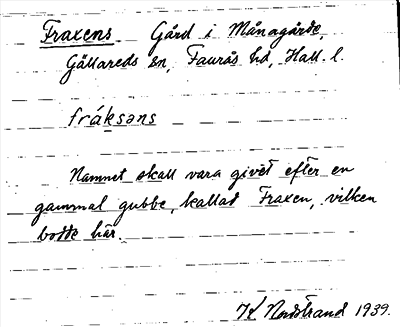 Fraxens Gård i Månagärde,
Gällareds sn, Faurås hd, Hall. l.
fráksəns
Namnet skall vara givet efter en
gammal gubbe, kallad Fraxen, vilken
bodde här.
Nordstrand 1939.